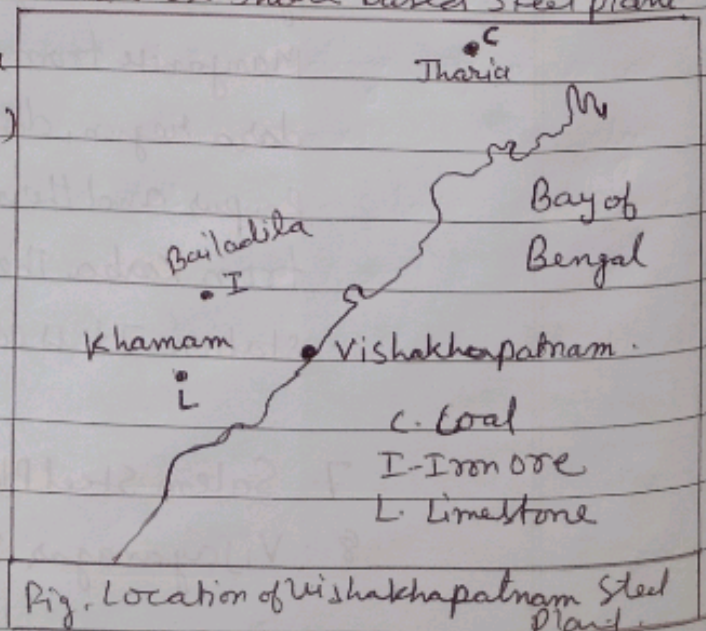 based Steel plant
C
Jharia
Bay of
Bengal
Bailadila
I
Khamam
Vishakhapatnam.
L
C. Coal
I-Iron ore
L. Limestone
Fig. Location of Vishakhapatnam Steel
Plant.